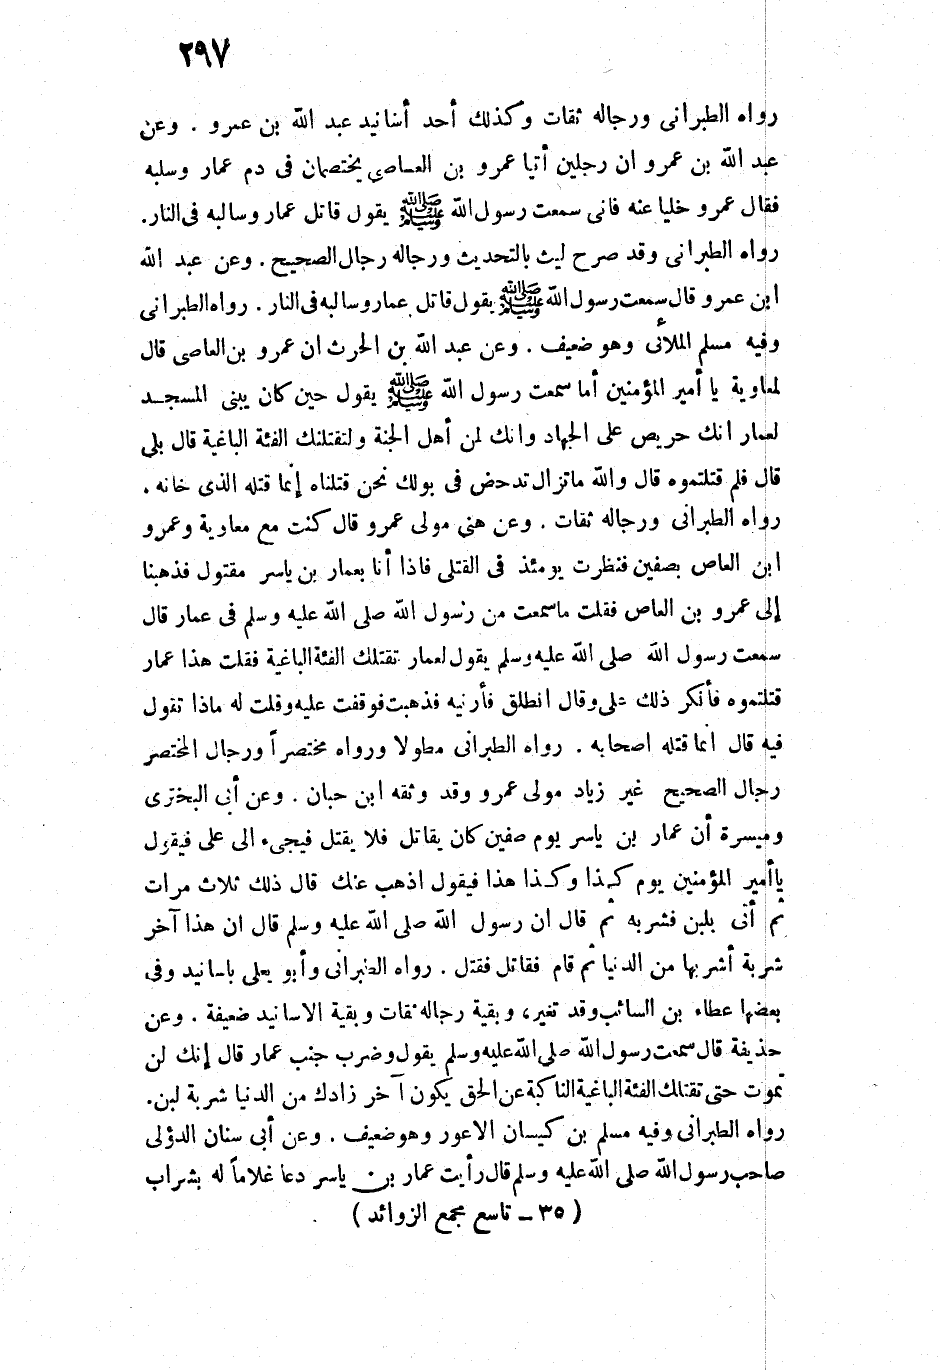 ٢٩٧
رواه الطبرانى ورجاله ثقات وكذلك أحد أسانيد عبد الله بن عمرو . وعن
عبد الله بن عمرو ان رجلين أتيا عمرو بن العـاصى يختصمان فى دم عمار وسلبه
فقال عمرو خليا عنه فانى سمعت رسول الله ﷺ يقول قاتل عمار وسالبه فى النار.
رواه الطبرانى وقد صرح ليث بالتحديث ورجاله رجال الصحيح . وعن عبد الله
ابن عمرو قال سمعت رسول الله ﷺ يقول قاتل عمار وسالبه فى النار . رواه الطبرانى
وفيه مسلم الملائى وهو ضعيف . وعن عبد الله بن الحرث ان عمرو بن العاصى قال
لمعاوية يا أمير المؤمنين أما سمعت رسول الله ﷺ يقول حين كان يبنى المسجـد
لعمار انك حريص على الجهاد وانك لمن أهل الجنة ولتقتلنك الفئة الباغية قال بلى
قال فلم قتلتموه قال والله ماتزال تدحض فى بولك نحن قتلناه إنما قتله الذى خانه .
رواه الطبرانى ورجاله ثقات . وعن هنى مولى عمرو قال كنت مع معاوية وعمرو
ابن العاص بصفين فنظرت يومئذ فى القتلى فاذا أنا بعمار بن ياسر مقتول فذهبنا
إلى عمرو بن العاص فقلت ماسمعت من رسول الله صلى الله عليه وسلم فى عمار قال
سمعت رسول الله صلى الله عليه وسلم يقول لعمار تقتلك الفئة الباغية فقلت هذا عمار
قتلتموه فأنكر ذلك على وقال انطلق فأرنيه فذهبت فوقفت عليه وقلت له ماذا تقول
فيه قال انما قتله اصحابه . رواه الطبرانى مطولا ورواه مختصراً ورجال المختصر
رجال الصحيح غير زياد مولى عمرو وقد وثقه ابن حبان . وعن أبى البخترى
وميسرة أن عمار بن ياسر يوم صفين كان يقاتل فلا يقتل فيجىء الى على فيقول
ياأمير المؤمنين يوم كـذا وكـذا هذا فيقول اذهب عنك قال ذلك ثلاث مرات
ثم أتى بلبن فشربه ثم قال ان رسول الله صلى الله عليه وسلم قال ان هذا آخر
شربة أشربها من الدنيا ثم قام فقاتل فقتل . رواه الطبرانى وأبو يعلى باسانيد وفى
بعضها عطاء بن السائب وقد تغير، وبقية رجاله ثقات وبقية الاسانيد ضعيفة . وعن
حذيفة قال سمعت رسول الله صلى الله عليه وسلم يقول وضرب جنب عمار قال إنك لن
تموت حتى تقتلك الفئة الباغية الناكبة عن الحق يكون آخر زادك من الدنيا شربة لبن.
رواه الطبرانى وفيه مسلم بن كيسان الاعور وهو ضعيف . وعن أبى سنان الدؤلى
صاحب رسول الله صلى الله عليه وسلم قال رأيت عمار بن ياسر دعا غلاماً له بشراب
( ٣٥ ــ تاسع مجمع الزوائد )